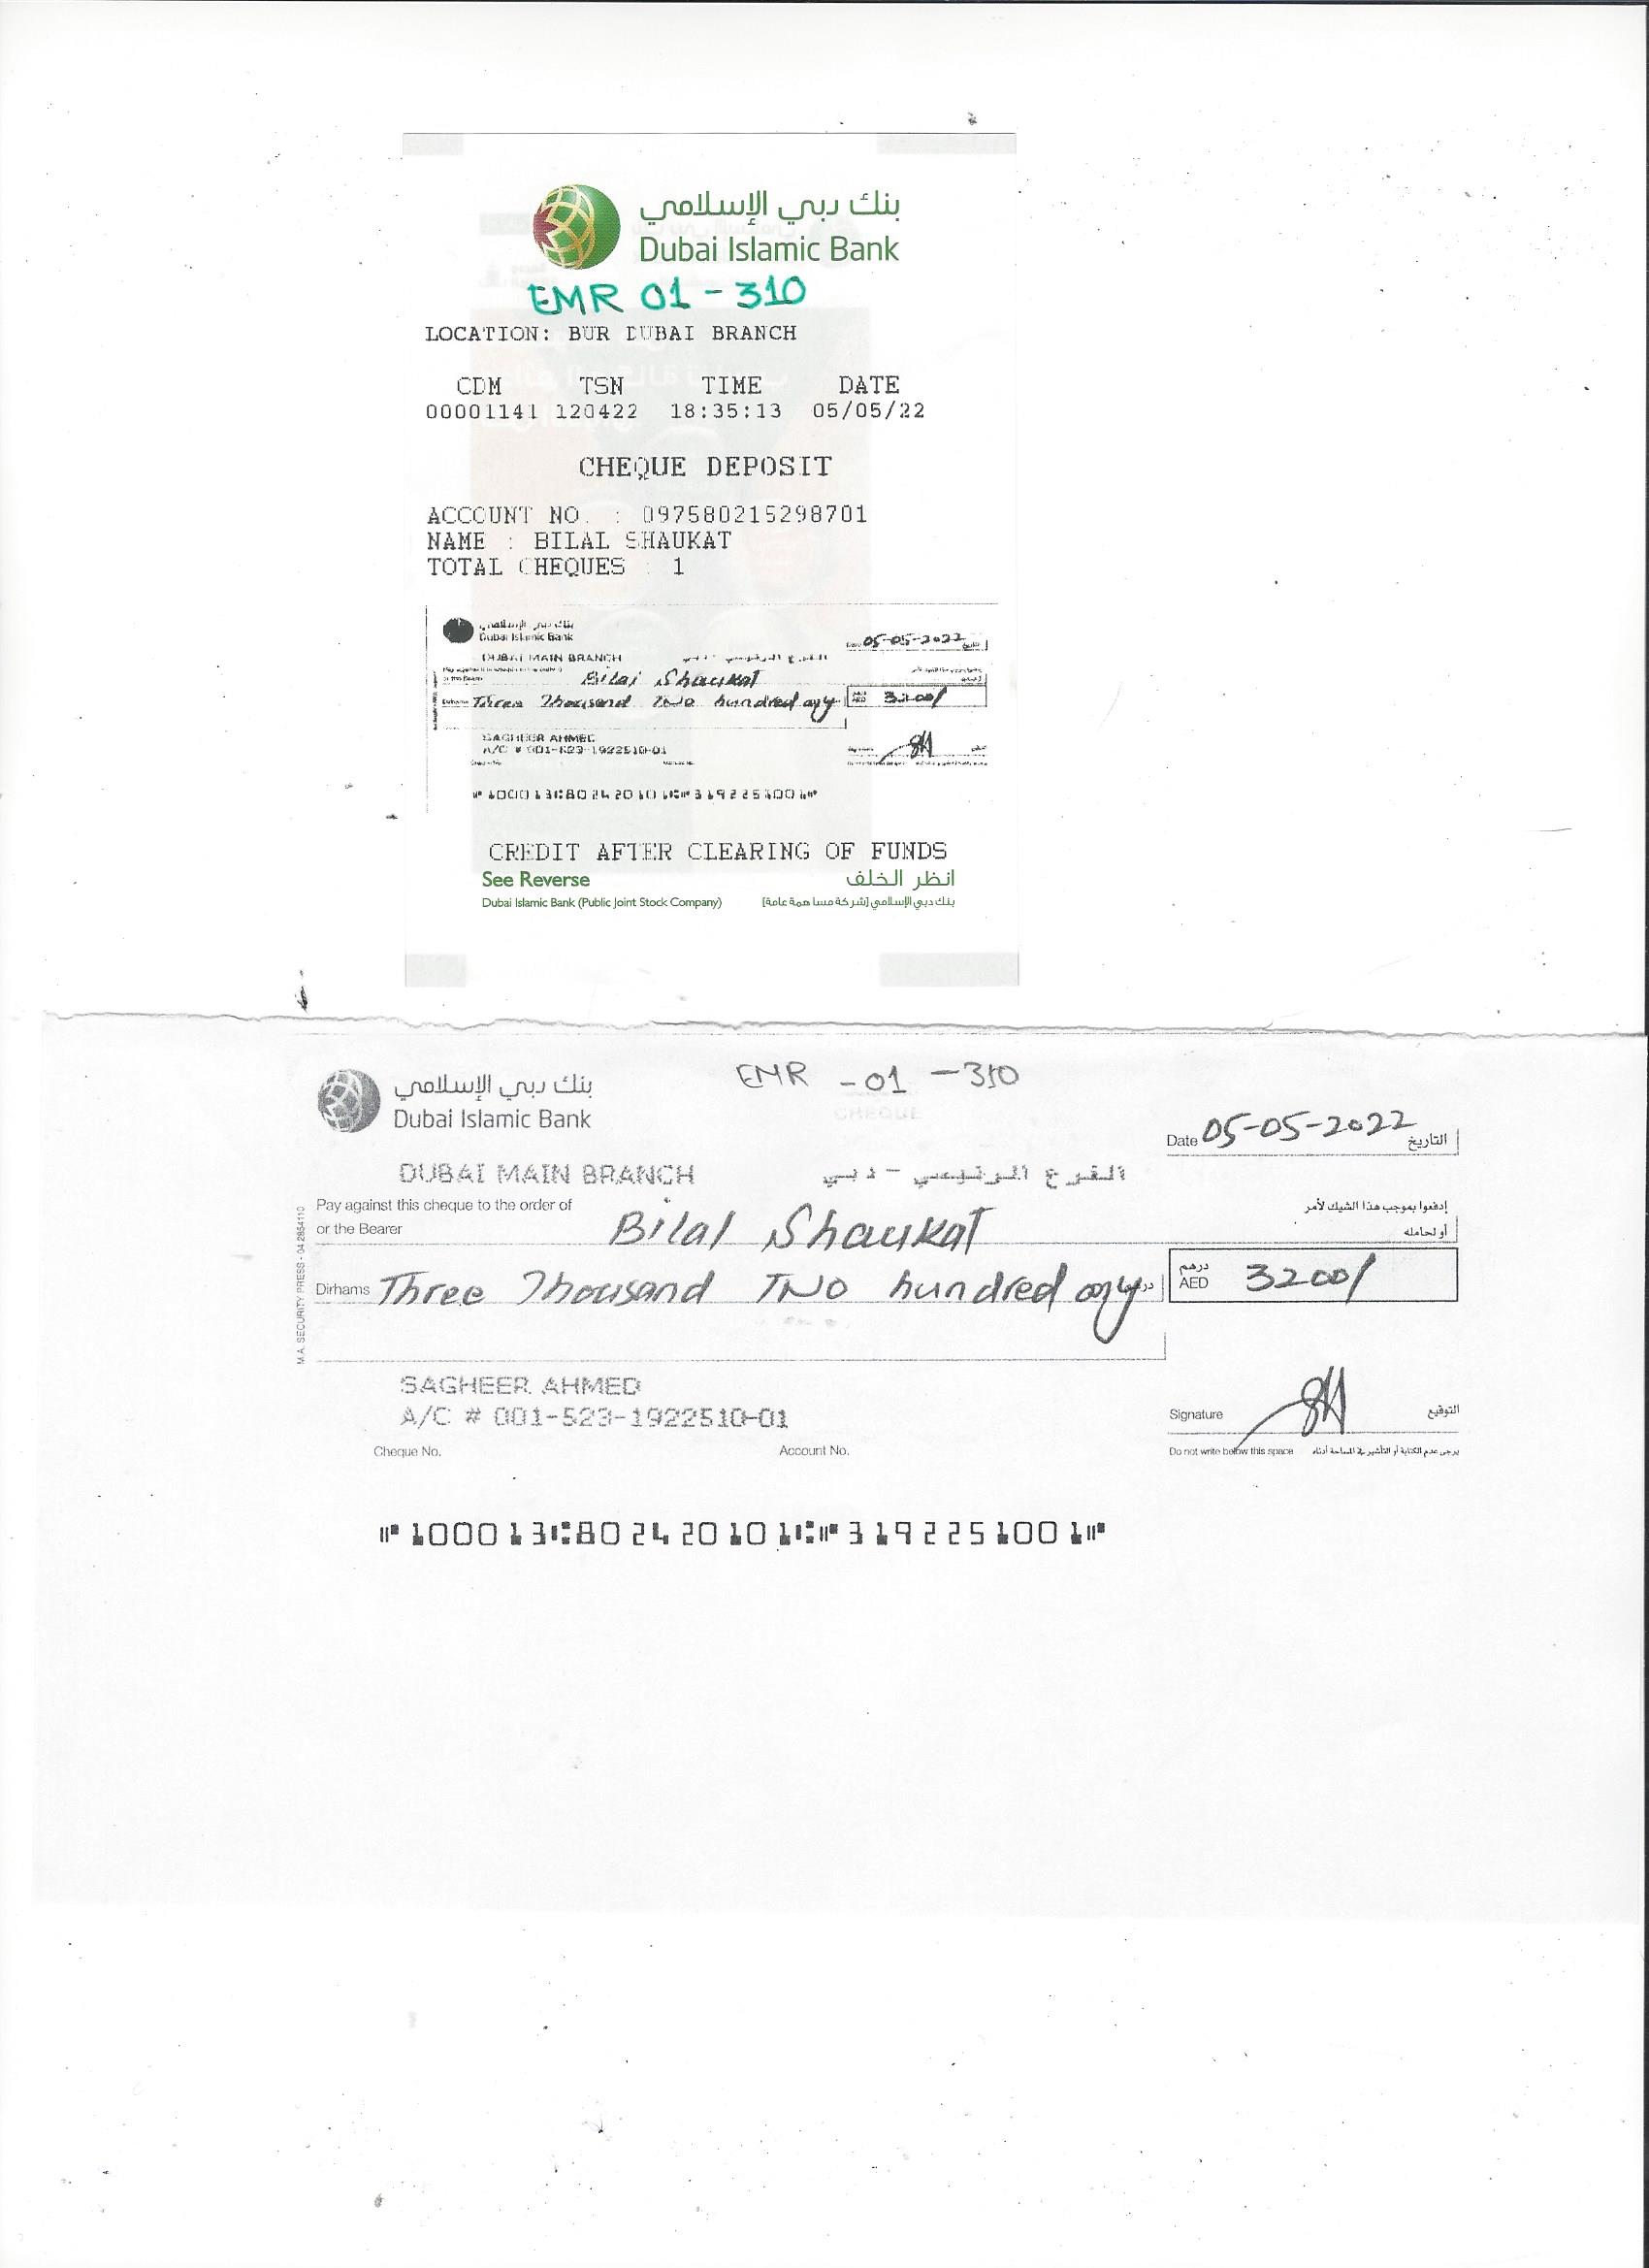 بنك دبي الإسلامي
Dubai Islamic Bank
EMR 01 - 310
LOCATION: BUR DUBAI BRANCH
CDM TSN TIME DATE
00001141 120422 18:35:13 05/05/22
CHEQUE DEPOSIT
ACCOUNT NO. : 097580215298701
NAME : BILAL SHAUKAT
TOTAL CHEQUES : 1
بنك دبي الإسلامي
Dubai Islamic Bank
05-05-2022
DUBAI MAIN BRANCH
Bilal Shaukat
Three Thousand Two hundred only 3200/
SAGHEER AHMED
A/C # 001-523-1922510-01
⑈100013⑆802420101⑆⑈3192251001⑈
CREDIT AFTER CLEARING OF FUNDS
See Reverse انظر الخلف
Dubai Islamic Bank (Public Joint Stock Company) بنك دبي الإسلامي (شركة مساهمة عامة)
EMR - 01 - 310
بنك دبي الإسلامي
Dubai Islamic Bank
CHEQUE
Date 05-05-2022 التاريخ
DUBAI MAIN BRANCH الفرع الرئيسي - دبي
Pay against this cheque to the order of إدفعوا بموجب هذا الشيك لأمر
or the Bearer Bilal Shaukat أو لحامله
Dirhams Three Thousand Two hundred only درهم AED 3200/
M.A. SECURITY PRESS - 04 2854110
SAGHEER AHMED
A/C # 001-523-1922510-01
Signature التوقيع
Cheque No. Account No. Do not write below this space يرجى عدم الكتابة أو التأشير في المساحة أدناه
⑈100013⑆802420101⑆⑈3192251001⑈